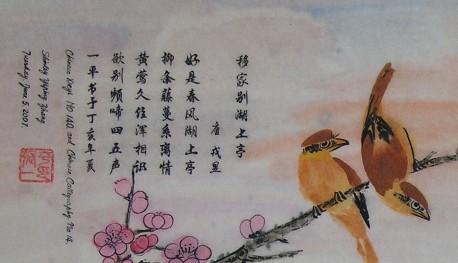 移家别湖上亭
唐 戎昱
好是春风湖上亭
柳条藤蔓系离情
黄莺久住浑相识
欲别频啼四五声
一平书于丁亥年夏
Chinese No 140. and Chinese Calligraphy No 14.
Yiping Zhang
Tuesday, June 5, 2007.